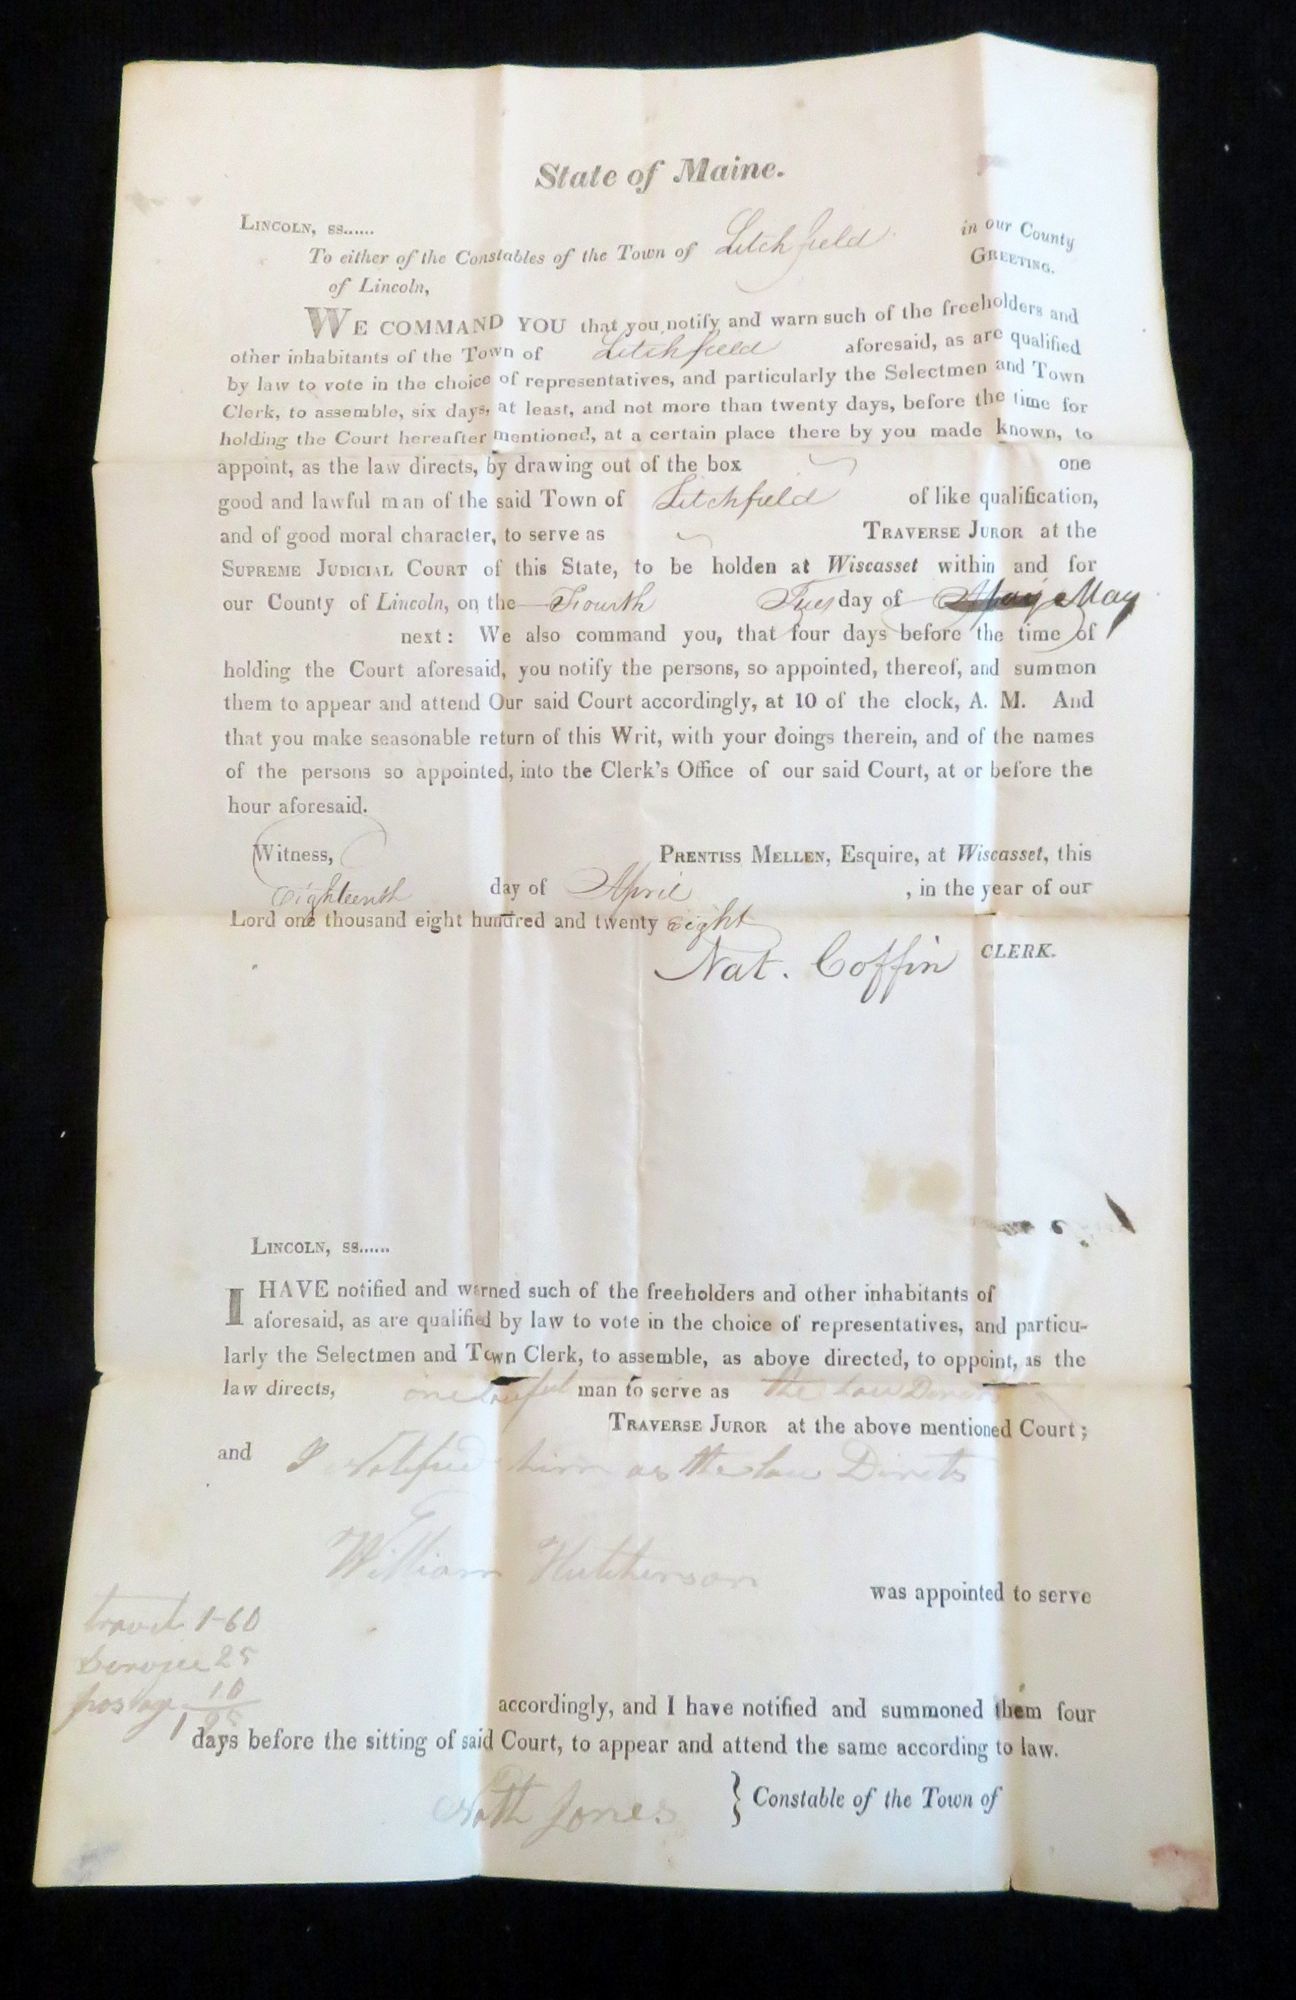 State of Maine.
LINCOLN, ss......
To either of the Constables of the Town of Litchfield in our County
of Lincoln, GREETING.
WE COMMAND YOU that you notify and warn such of the freeholders and
other inhabitants of the Town of Litchfield aforesaid, as are qualified
by law to vote in the choice of representatives, and particularly the Selectmen and Town
Clerk, to assemble, six days, at least, and not more than twenty days, before the time for
holding the Court hereafter mentioned, at a certain place there by you made known, to
appoint, as the law directs, by drawing out of the box one
good and lawful man of the said Town of Litchfield of like qualification,
and of good moral character, to serve as TRAVERSE JUROR at the
SUPREME JUDICIAL COURT of this State, to be holden at Wiscasset within and for
our County of Lincoln, on the Fourth Tuesday of May
next: We also command you, that four days before the time of
holding the Court aforesaid, you notify the persons, so appointed, thereof, and summon
them to appear and attend Our said Court accordingly, at 10 of the clock, A. M. And
that you make seasonable return of this Writ, with your doings therein, and of the names
of the persons so appointed, into the Clerk's Office of our said Court, at or before the
hour aforesaid.
Witness, PRENTISS MELLEN, Esquire, at Wiscasset, this
Eighteenth day of April , in the year of our
Lord one thousand eight hundred and twenty eight
Nat. Coffin CLERK.
LINCOLN, ss......
I HAVE notified and warned such of the freeholders and other inhabitants of
aforesaid, as are qualified by law to vote in the choice of representatives, and particu-
larly the Selectmen and Town Clerk, to assemble, as above directed, to oppoint, as the
law directs, one lawful man to serve as the law Directs
TRAVERSE JUROR at the above mentioned Court;
and I Notified him as the law Directs
William Hutchinson
was appointed to serve
travil 1-60
Servise 25
postage 10
1 95
accordingly, and I have notified and summoned them four
days before the sitting of said Court, to appear and attend the same according to law.
Nath Jones } Constable of the Town of